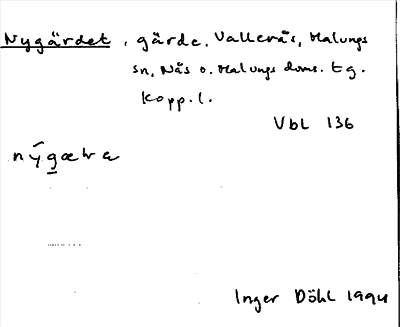 Nygärdet, gärde, Vallerås, Malungs
sn, Nås o. Malungs doms. tg.
Kopp. l.
Vbl 136
nýgætra
Inger Döhl 1994